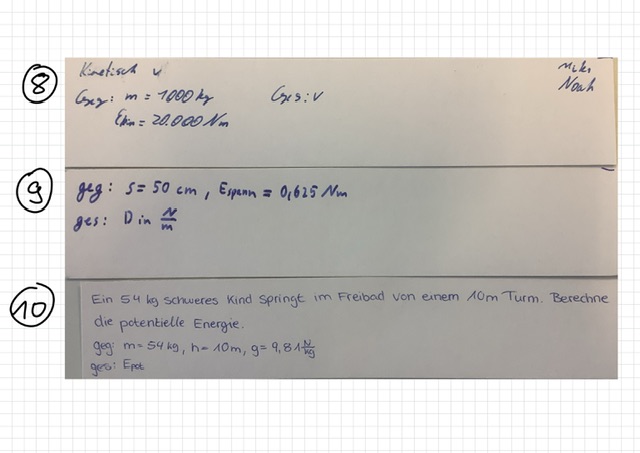 8
Kinetisch v
Geg: m = 1000 kg Ges: v
Ekin = 20.000 Nm
Noah
9
geg: s = 50 cm, Espann = 0,625 Nm
ges: D in N/m
10
Ein 54 kg schweres Kind springt im Freibad von einem 10m Turm. Berechne
die potentielle Energie.
geg: m = 54 kg, h = 10m, g = 9,81 N/kg
ges: Epot